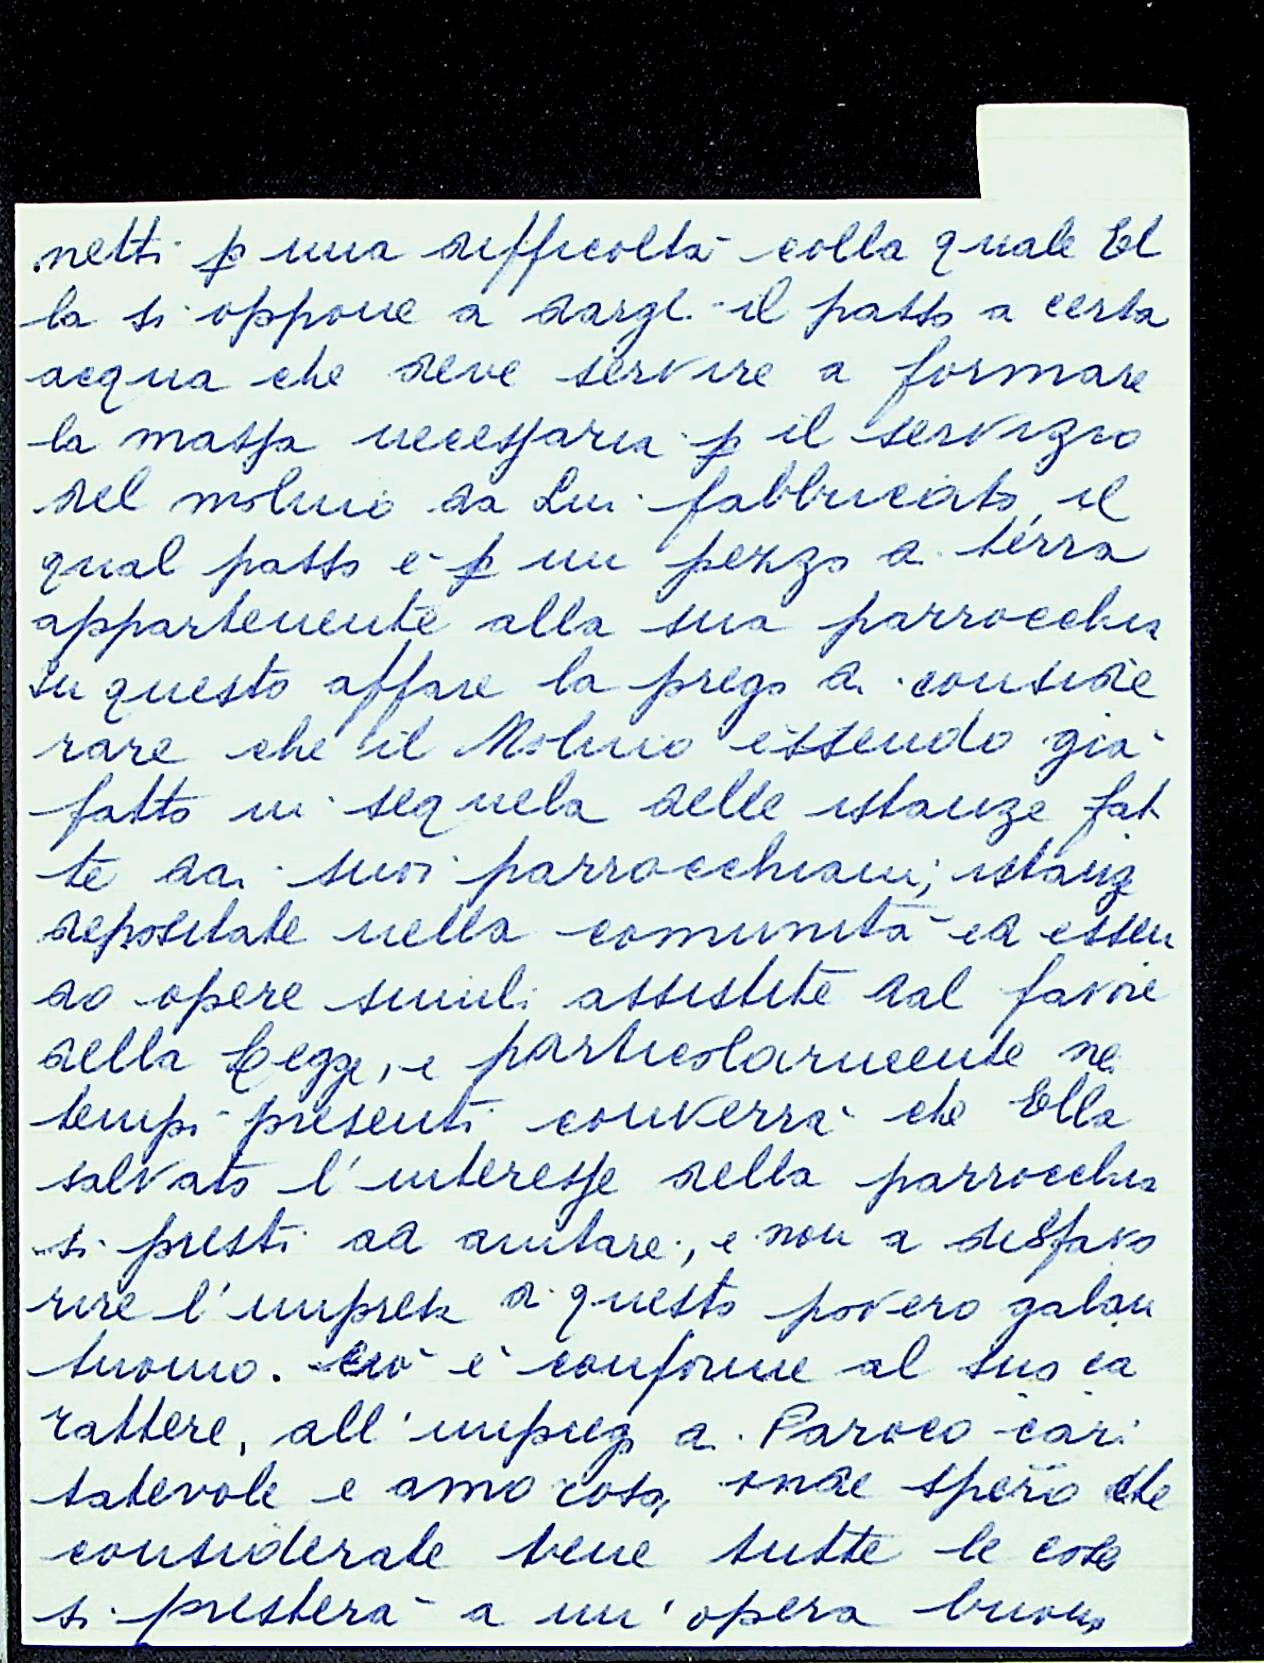 netti p una difficoltà colla quale El
la si oppone a dargli il passo a certa
acqua che deve servire a formare
la massa necessaria p il servizio
del molino da Lui fabbricato, il
qual passo è p un pezzo di terra
appartenente alla sua parrocchia
Su questo affare la prego di conside
rare che il Molino essendo già
fatto in sequela delle istanze fat
te dai suoi parrocchiani; istanze
depositate nella comunità ed essen
do opere simili assistite dal favore
della Legge, e particolarmente nei
tempi presenti converrà che Ella
salvato l'interesse della parrocchia
si presti ad aiutare, e non a disfavo
rire l'impresa di questo povero galan
tuomo. Ciò è conforme al suo ca
rattere, all'impiego di Paroco cari
tatevole e amoroso, onde spero che
considerate bene tutte le cose
si presterà a un'opera buona